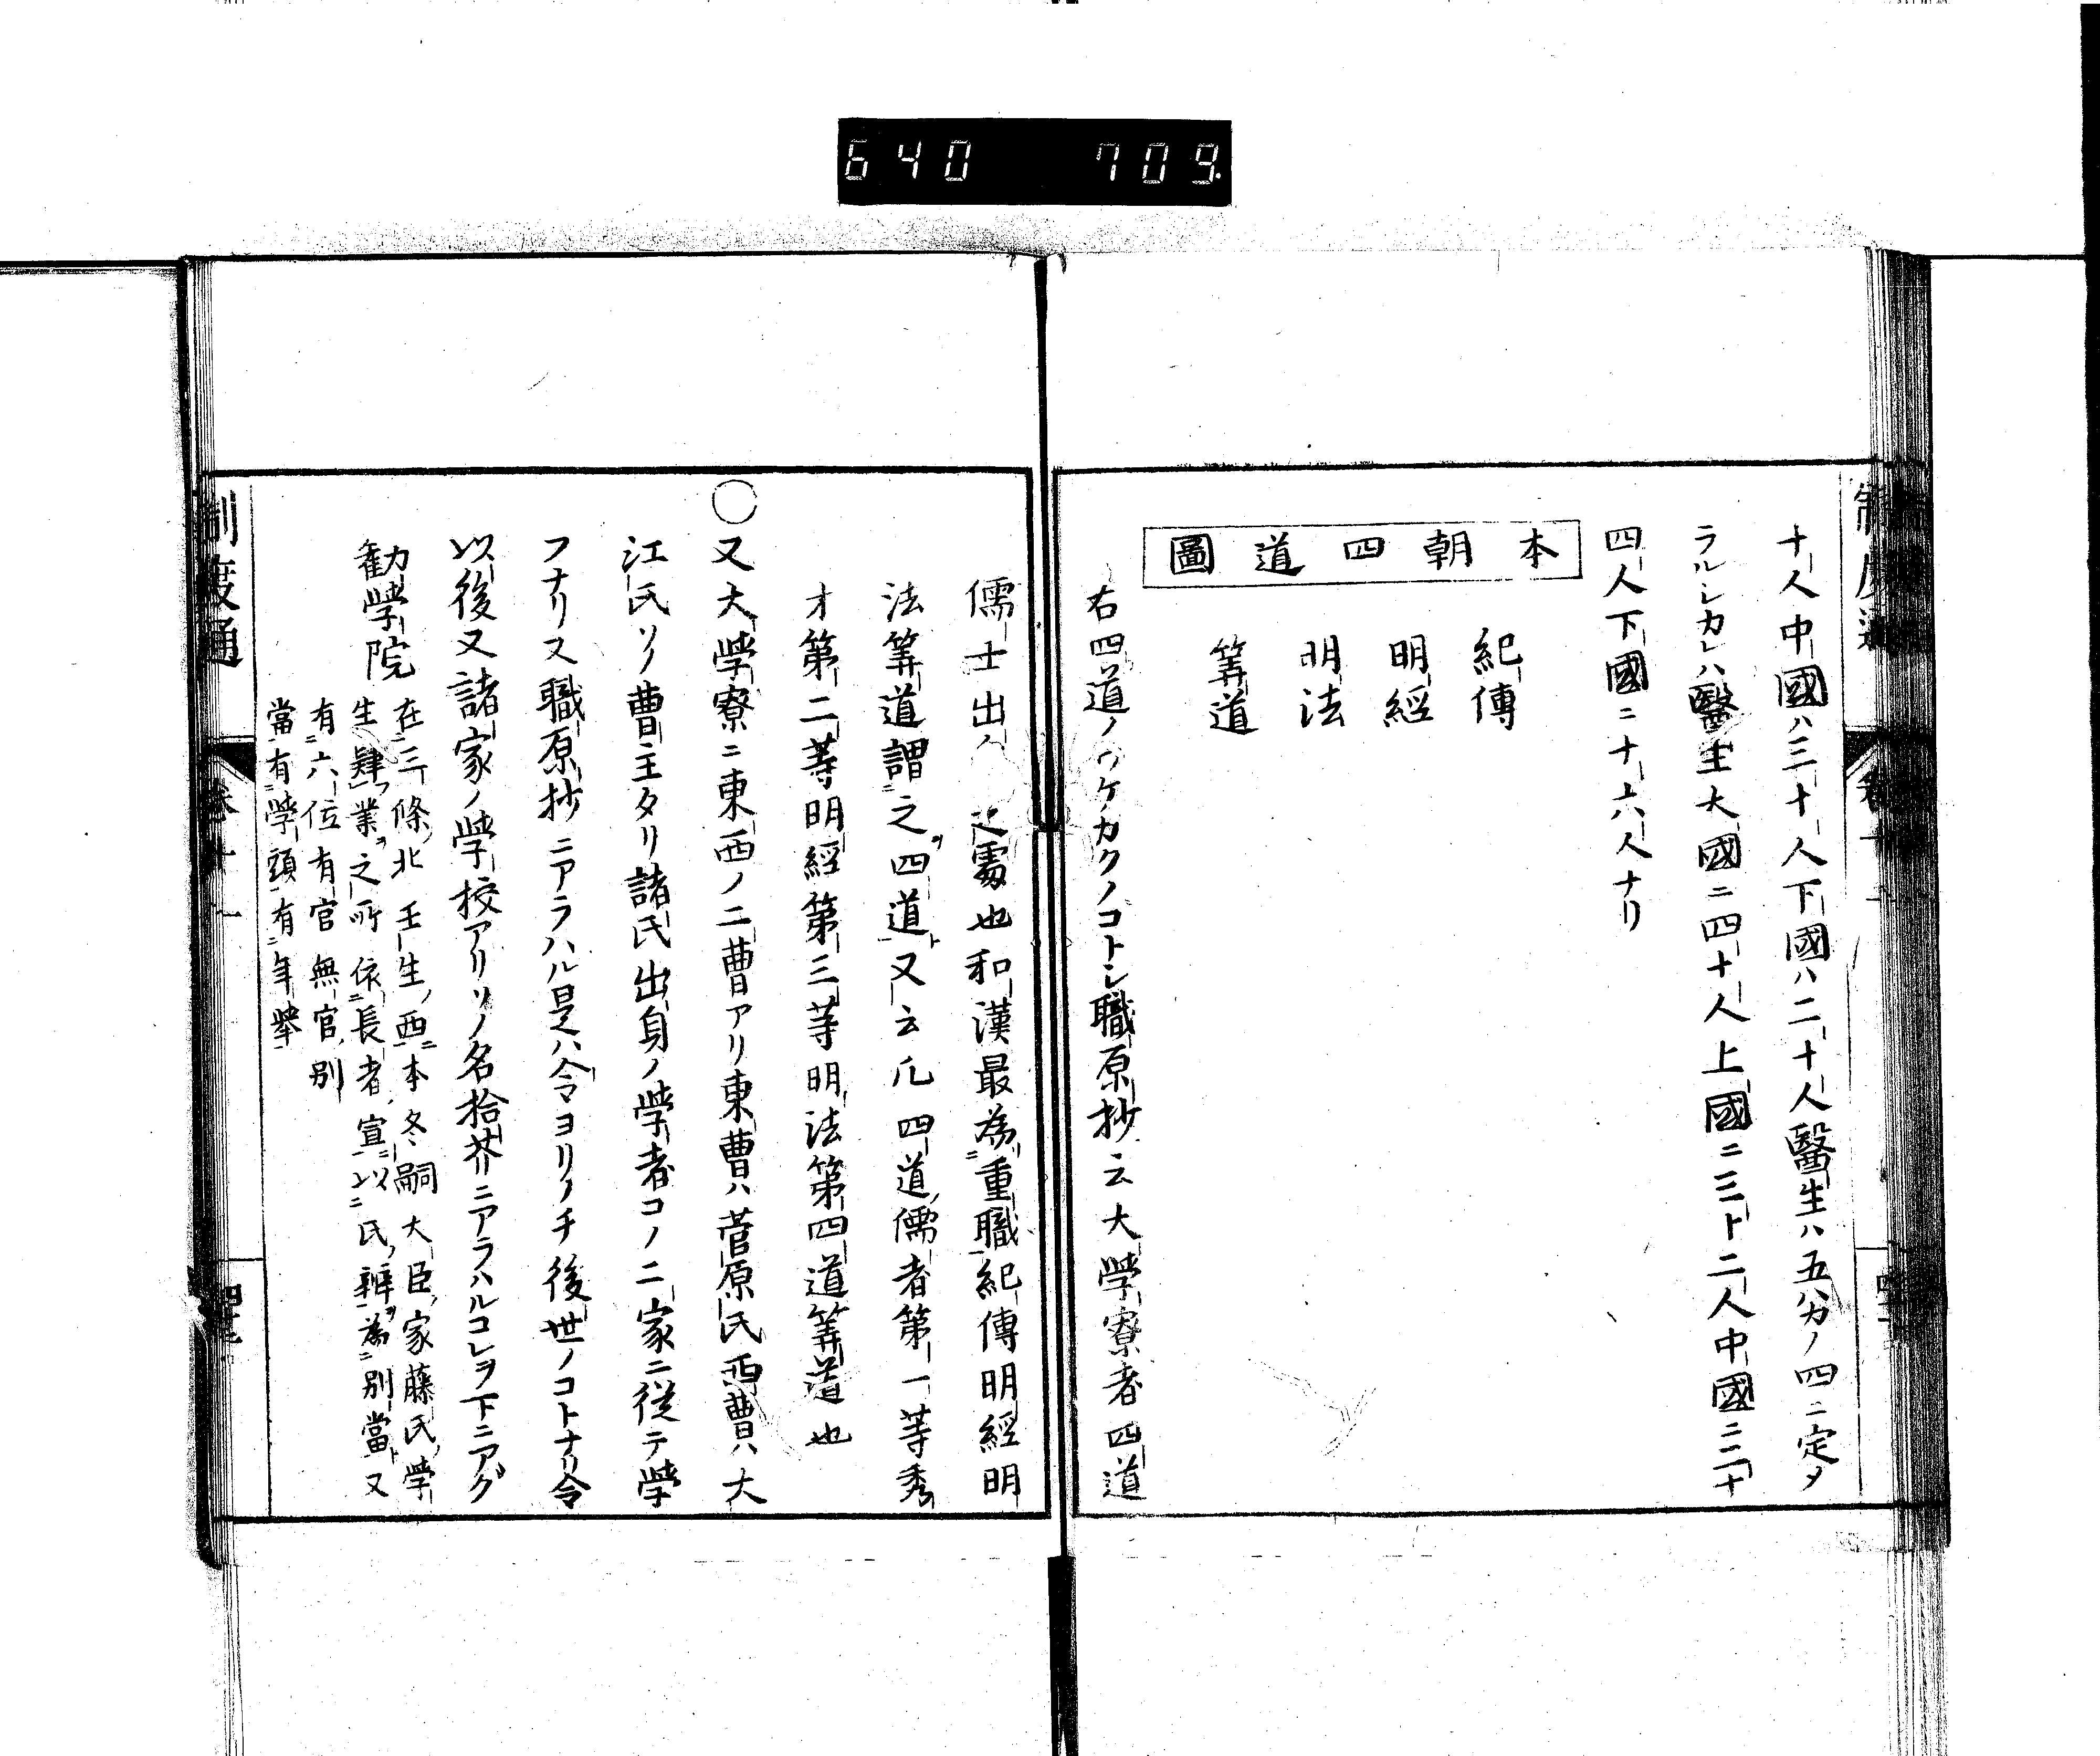 640 709
十人中國ハ三十人下國ハ二十人醫生ハ五分ノ四ニ定メ
ラルシカレハ醫生大國ニ四十人上國ニ三十二人中國ニ二十
四人下國ニ十六人ナリ
本朝四道圖
紀傳
明經
明法
筭道
右四道ノワケカクノコトシ職原抄云大學寮者四道
儒士出 之處也和漢最為重職紀傳明經明
法筭道謂之四道又云凡四道儒者第一等秀
才第二等明經第三等明法第四道筭道也
〇又大學寮ニ東西ノ二曹アリ東曹ハ菅原氏西曹ハ大
江氏ソノ曹主タリ諸氏出身ノ學者コノ二家ニ從テ學
フナリ又職原抄ニアラハル是ハ令ヨリノチ後世ノコトナリ令
以後又諸家ノ學校アリソノ名拾芥ニアラハルコレヲ下ニアグ
勸學院
在三條北壬生西本冬嗣大臣家藤氏學
生肄業之所依長者宣以氏辨為別當又
有六位有官無官別
當有學頭有年擧
制度通
卷十一